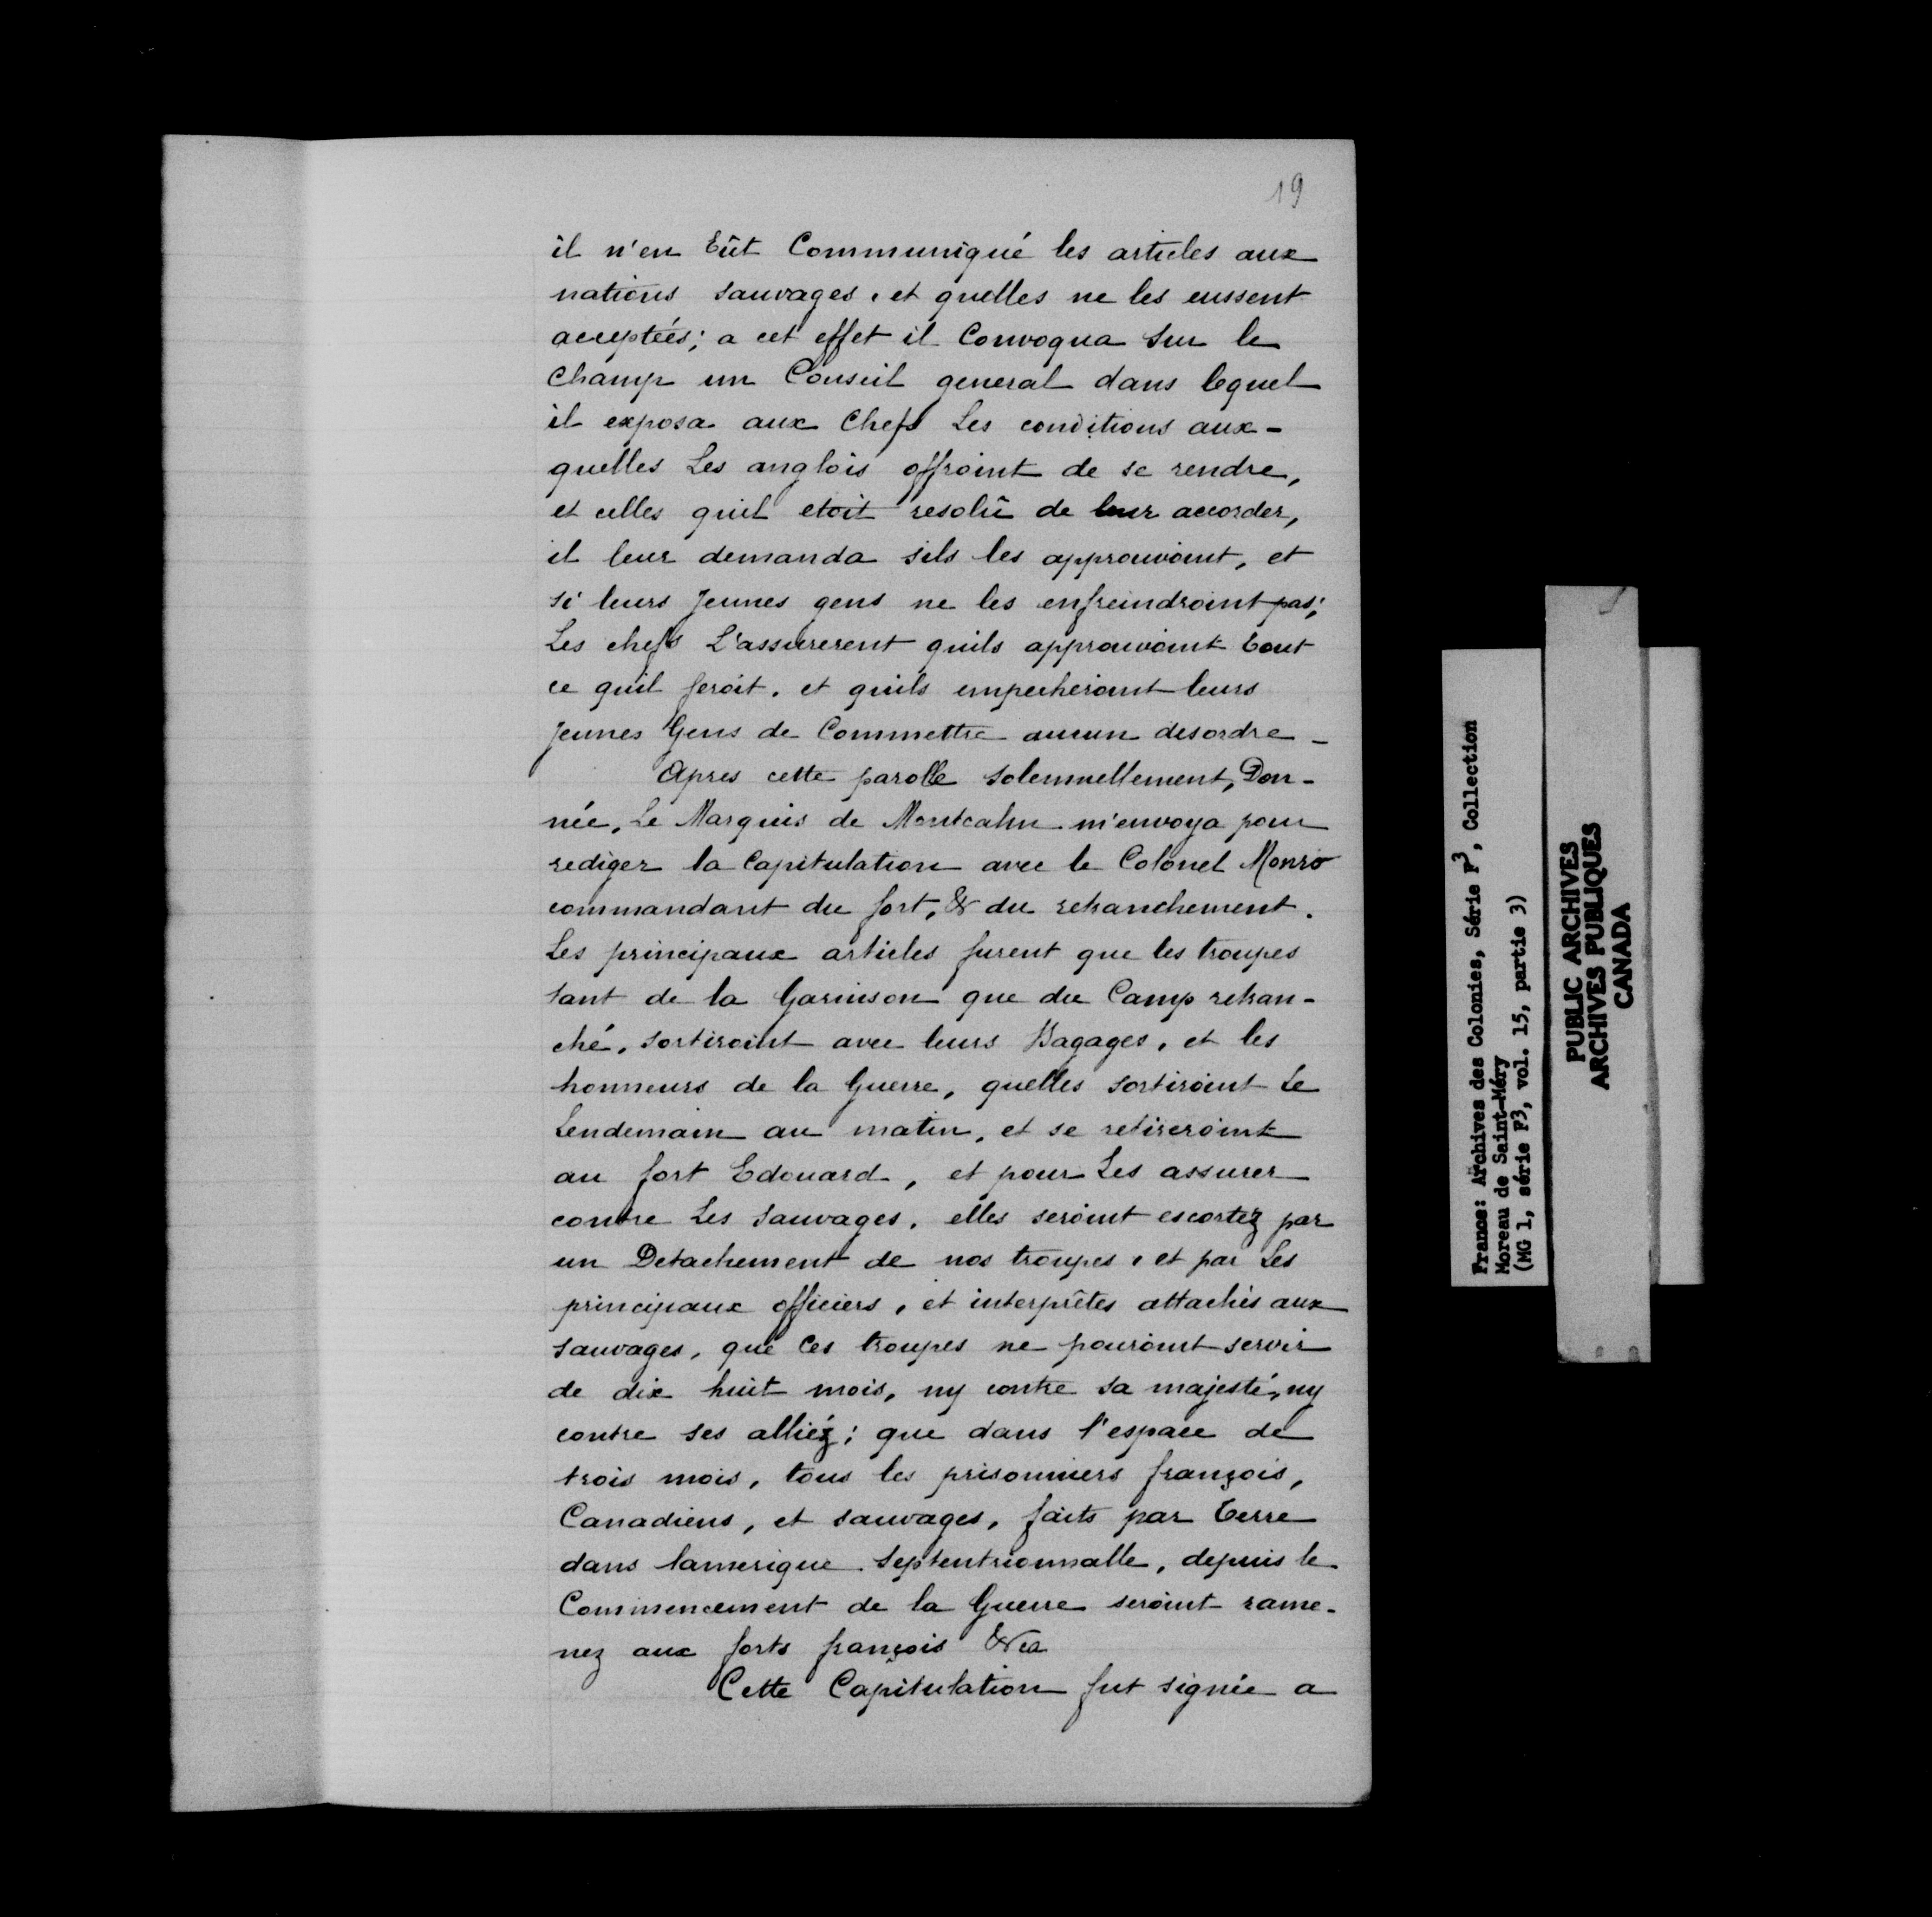 19
il n'en Eût Communiqué les articles aux
nations sauvages, et quelles ne les eussent
acceptées; a cet effet il Convoqua Sur le
Champ un Conseil general dans lequel
il exposa aux Chefs Les conditions aux-
quelles Les anglois offroint de se rendre,
et celles quil etoit resolû de leur accorder,
il leur demanda sils les approuvoint, et
si leurs Jeunes gens ne les enfreindroint pas;
Les chefs L'assurerent quils approuvoint tout
ce quil feroit, et quils empecheroint leurs
jeunes Gens de Commettre aucun desordre –
Apres cette parolle solemnellement, Don-
née, Le Marquis de Montcalm m'envoya pour
rediger la Capitulation avec le Colonel Monro
commandant du fort, & du retranchement.
Les principaux articles furent que les troupes
tant de la Garnison que du Camp retran-
ché, sortiroint avec leurs Bagages, et les
honneurs de la Guerre, quelles sortiroint Le
Lendemain au matin, et se retireroint
au fort Edouard, et pour Les assurer
contre Les Sauvages, elles seroint escortez par
un Detachement de nos troupes, et par Les
principaux officiers, et interprêtes attachés aux
sauvages, que Ces troupes ne pouroint servir
de dix huit mois, ny contre sa majesté, ny
contre ses alliéz; que dans l'espace de
trois mois, tous les prisonniers françois,
Canadiens, et sauvages, faits par terre
dans lamerique Septentrionnalle, depuis le
Commencement de la Guerre seroint rame-
nez aux forts françois &ca
Cette Capitulation fut signée a
France: Archives des Colonies, Série F3, Collection
Moreau de Saint-Méry
(MG 1, série F3, vol. 15, partie 3)
PUBLIC ARCHIVES
ARCHIVES PUBLIQUES
CANADA